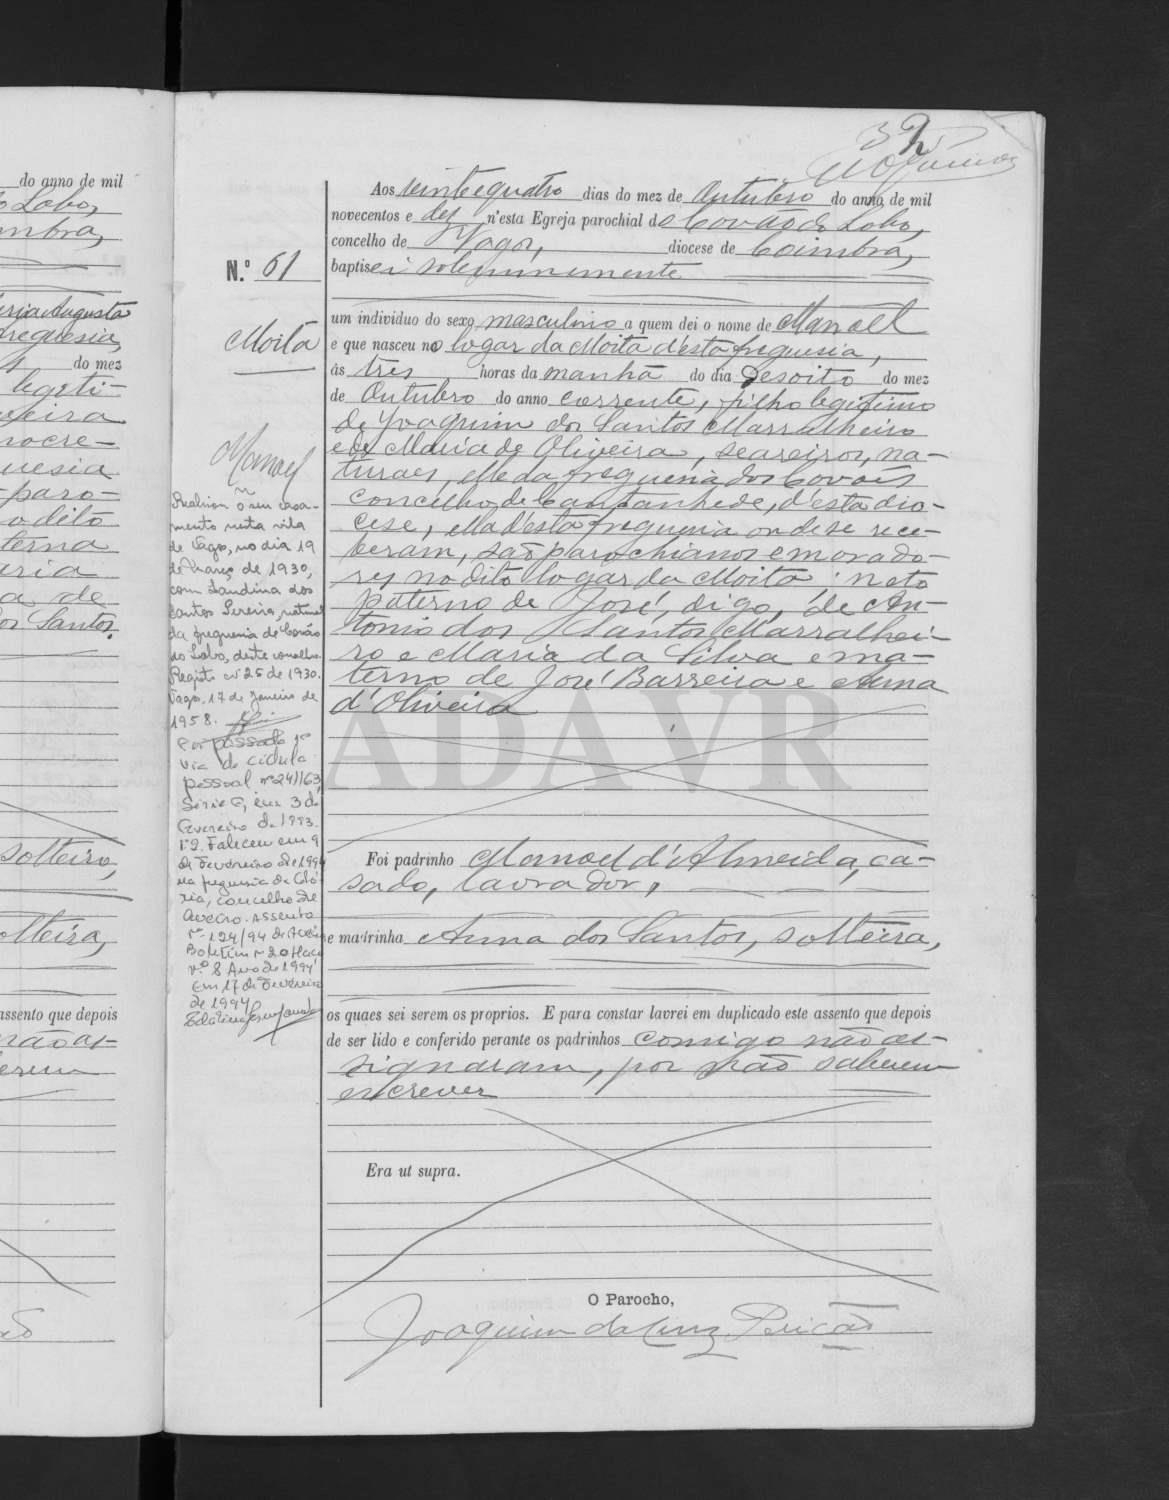 32
N.º 61
Moita
Manoel
Realizou o seu casa-
mento nesta vila
de Vagos, no dia 19
de Março de 1930,
com Landina dos
Santos Pereira, natural
da freguesia de Covão
do Lobo, deste concelho.
Registo nº 25 de 1930.
Vagos, 17 de Janeiro de
1958.
Foi passada
via de cédula
pessoal nº 241163
Série C, em 3 de
Fevereiro de 1993.
Nº 2. Faleceu em 9
de Fevereiro de 1994
na freguesia da Gló-
ria, concelho de
Aveiro. Assento
nº 124/94 de Aveiro
Boletim nº 20 Maço
nº 8 Ano de 1994
Em 17 de Fevereiro
de 1994
Aos vinte e quatro dias do mez de Outubro do anno de mil
novecentos e dez n'esta Egreja parochial do Covão do Lobo,
concelho de Vagos, diocese de Coimbra,
baptisei solemnemente
um individuo do sexo masculino a quem dei o nome de Manoel
e que nasceu no logar da Moita d'esta freguesia,
ás tres horas da manhã do dia desoito do mez
de Outubro do anno corrente, filho legitimo
de Joaquim dos Santos Marralheiro
e de Maria de Oliveira, seareiros, na-
turaes, elle da freguesia dos Covões
concelho de Cantanhede, d'esta dio-
cese, ella d'esta freguesia onde se rece-
beram, são parochianos e morado-
res no dito logar da Moita; neto
paterno de José, digo, de An-
tonio dos Santos Marralhei-
ro e Maria da Silva e ma-
terno de José Barreira e Anna
d'Oliveira
ADAVR
Foi padrinho Manoel d'Almeida, ca-
sado, lavrador,
e madrinha Anna dos Santos, solteira,
os quaes sei serem os proprios. E para constar lavrei em duplicado este assento que depois
de ser lido e conferido perante os padrinhos comigo não as-
signaram, por não saberem
escrever
Era ut supra.
O Parocho,
Joaquim da Cruz Pericão
do anno de mil
o Lobo,
imbra,
Augusta
freguesia,
do mez
legiti-
veira
uesia
paro-
o dito
terna
aria
a de
os Santos.
solteiro,
olteira,
assento que depois
não as-